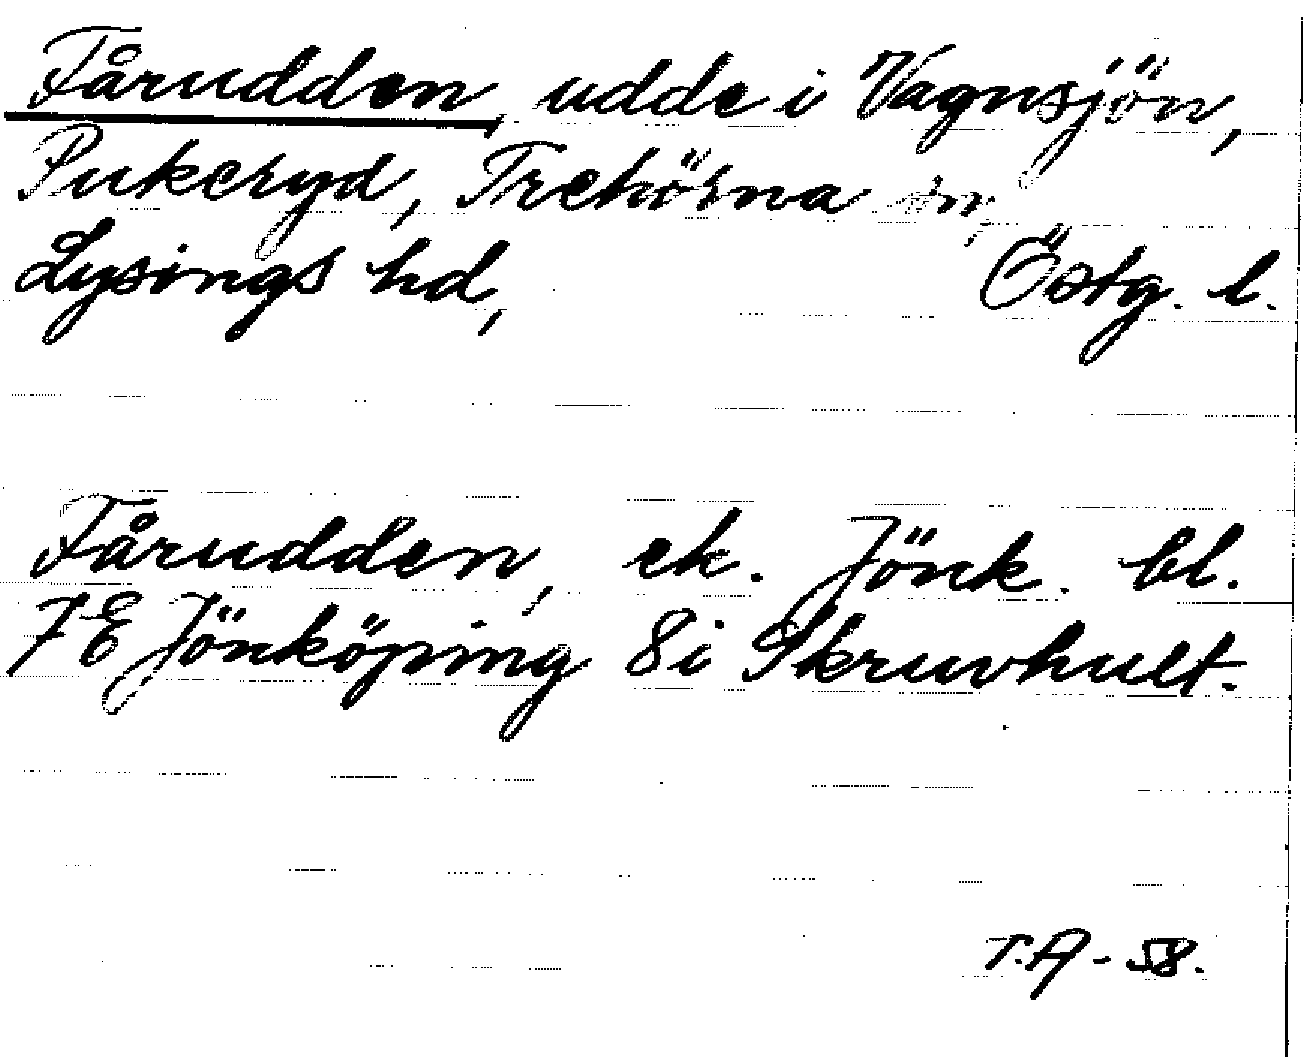 Fårudden, udde i Vagnsjön,
Pukeryd, Trehörna sn,
Lysings hd, Östg. l.
Fårudden, ek. Jönk. bl.
7E Jönköping 8i Skruvhult.
T.A - 58.